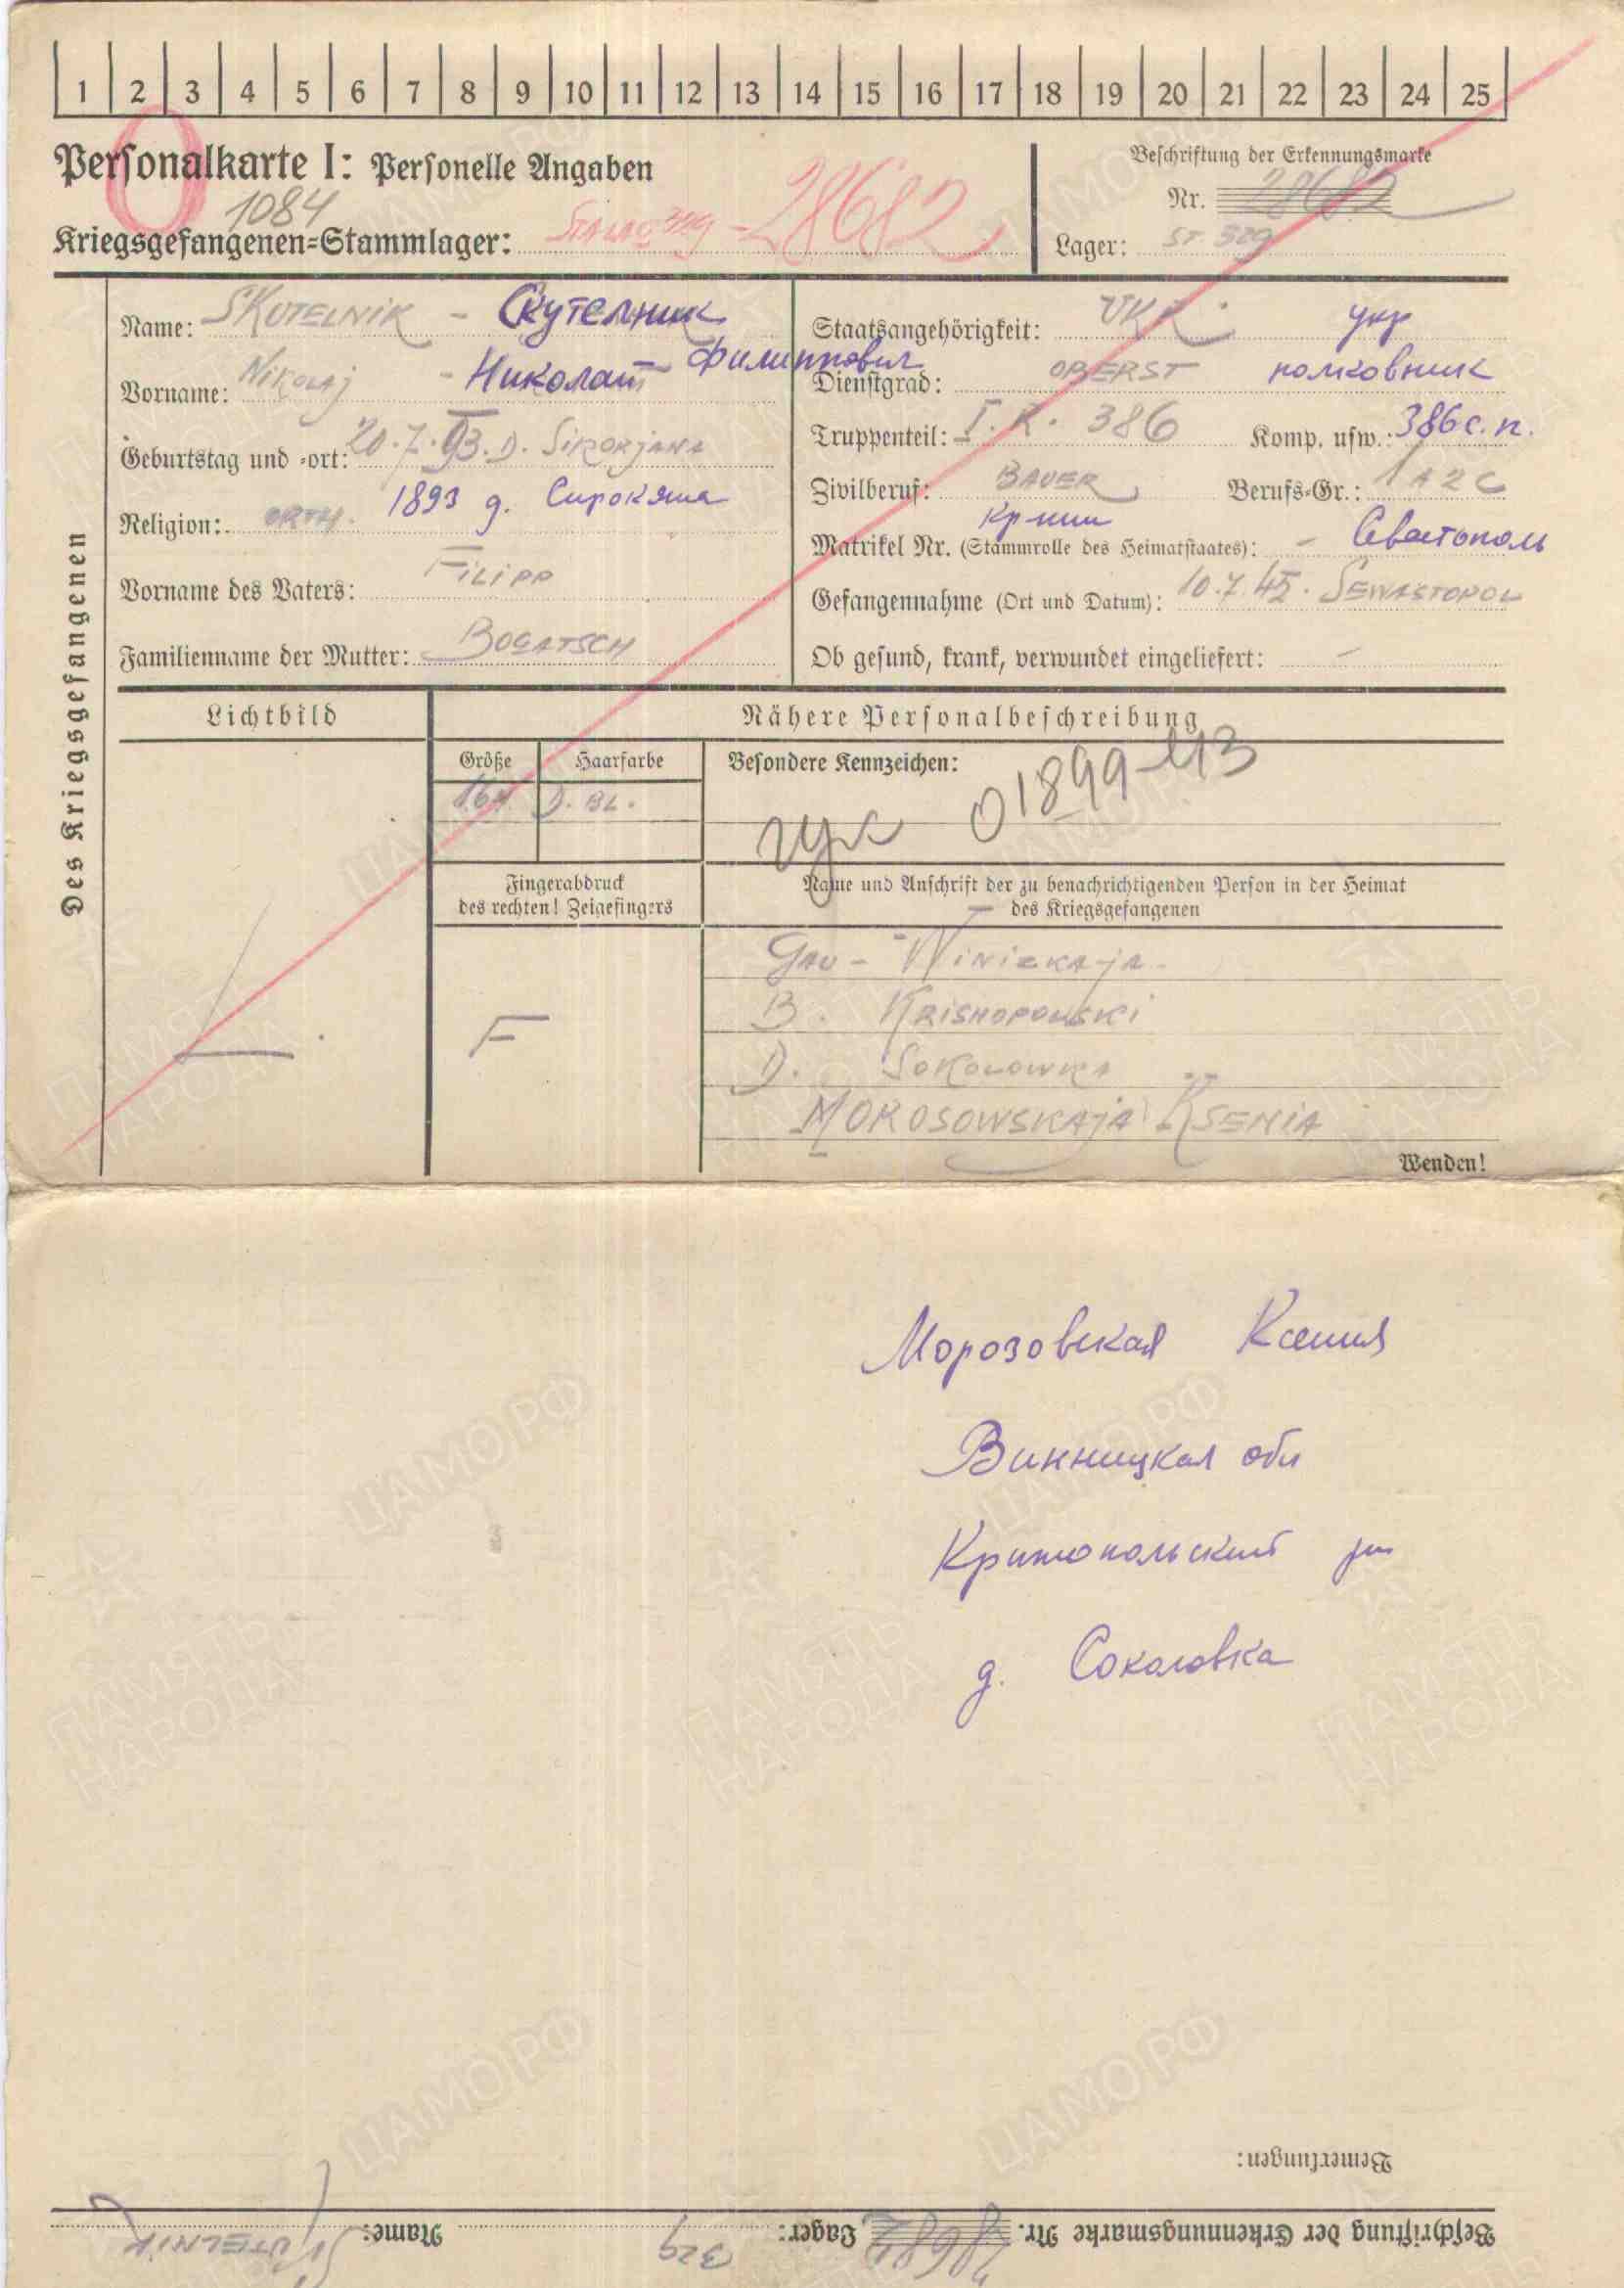 1 2 3 4 5 6 7 8 9 10 11 12 13 14 15 16 17 18 19 20 21 22 23 24 25
Personalkarte I: Personelle Angaben
1084
Kriegsgefangenen=Stammlager: STALAG 329 - 28682
Beschriftung der Erkennungsmarke
Nr. 28682
Lager: ST 329
Des Kriegsgefangenen
Name: SKUTELNIK - Скутелник
Vorname: NIKOLAJ - Николай Филиппович
Geburtstag und =ort: 20.7.93. D. SIROKJANA
Religion: ORTH. 1893 д. Сирокяна
Vorname des Vaters: FILIPP
Familienname der Mutter: BOGATSCH
Staatsangehörigkeit: UKR. укр
Dienstgrad: OBERST полковник
Truppenteil: I.R. 386 Komp. usw.: 386 с.п.
Zivilberuf: BAUER Berufs=Gr.: 1 A 2 C
кр-нин
Matrikel Nr. (Stammrolle des Heimatstaates): - Севастополь
Gefangennahme (Ort und Datum): 10.7.42. SEWASTOPOL
Ob gesund, krank, verwundet eingeliefert: -
Lichtbild
Nähere Personalbeschreibung
Größe Haarfarbe Besondere Kennzeichen:
164 D. BL.
01899-43
Fingerabdruck
des rechten! Zeigefingers
Name und Anschrift der zu benachrichtigenden Person in der Heimat
des Kriegsgefangenen
F
GAU - WINIZKAJA
B. KRISHOPOLSKI
D. SOKOLOWKA
MOROSOWSKAJA KSENIA
Wenden!
Морозовская Ксения
Винницкая обл
Крижопольский рн
д. Соколовка
Bemerkungen:
Beschriftung der Erkennungsmarke Nr. 28682 Lager: 329 Name: SKUTELNIK
ЦАМО РФ
ПАМЯТЬ
НАРОДА